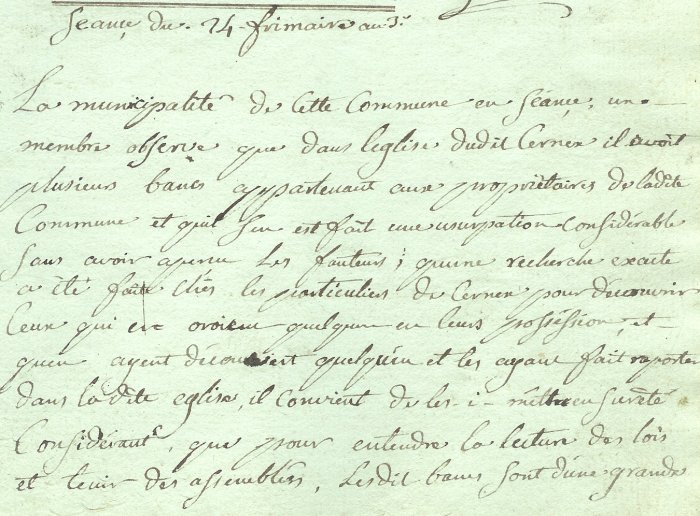 Séance du 24 frimaire an 3e
La municipalité de Cette Commune en séance, un
membre observe que dans leglise dudit Cernex il avoit
plusieurs bancs appartenant aux propriètaires de ladte
Commune et quil sen est fait une usurpation Considérable
sans avoir aperçu les fauteurs; quune recherche exacte
a été faite chés les particuliers de Cernex pour découvrir
Ceux qui en oroient quelquun en leurs posséssion, et
quen ayent découvert quelquun et les ayant fait raporter
dans la dte eglise, il Convient de les i mettre en sureté
Considérant, que pour entendre la lecture des lois
et tenir des assemblées, Lesdit bancs sont d'une grande